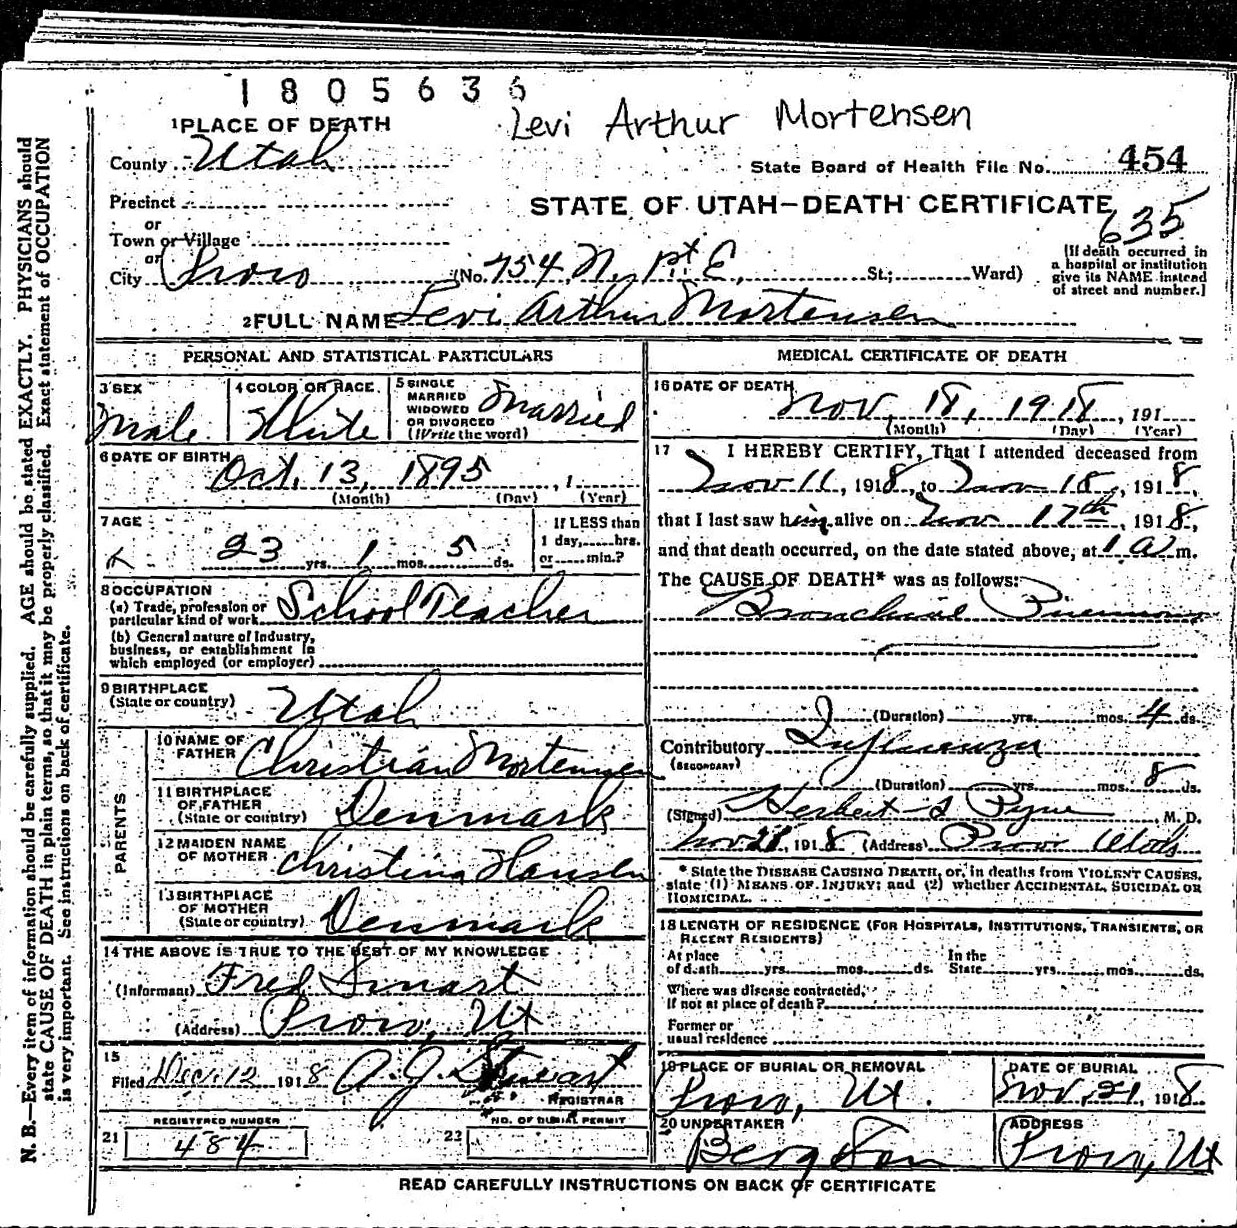 1805636
Levi Arthur Mortensen
1 PLACE OF DEATH
County Utah
State Board of Health File No. 454
Precinct
or
Town or Village
or
City Provo
STATE OF UTAH—DEATH CERTIFICATE
635
(No. 754, N, 1st E, St; Ward)
[If death occurred in
a hospital or institution
give its NAME instead
of street and number.]
2 FULL NAME Levi Arthur Mortensen
PERSONAL AND STATISTICAL PARTICULARS
3 SEX
Male
4 COLOR OR RACE
White
5 SINGLE
MARRIED
WIDOWED
OR DIVORCED
(Write the word)
Married
6 DATE OF BIRTH
Oct. 13, 1895, 1
(Month) (Day) (Year)
7 AGE
23 yrs. 1 mos. 5 ds.
If LESS than
1 day, hrs.
or min.?
8 OCCUPATION
(a) Trade, profession or
particular kind of work School Teacher
(b) General nature of Industry,
business, or establishment in
which employed (or employer)
9 BIRTHPLACE
(State or country) Utah
PARENTS
10 NAME OF
FATHER Christian Mortensen
11 BIRTHPLACE
OF FATHER
(State or country) Denmark
12 MAIDEN NAME
OF MOTHER Christina Hansen
13 BIRTHPLACE
OF MOTHER
(State or country) Denmark
14 THE ABOVE IS TRUE TO THE BEST OF MY KNOWLEDGE
(Informant) Fred
(Address) Provo, Ut
15
Filed Dec. 12 1918 A. J. Stewart
REGISTRAR
REGISTERED NUMBER
21 484
NO. OF BURIAL PERMIT
22
MEDICAL CERTIFICATE OF DEATH
16 DATE OF DEATH
Nov. 18, 1918, 191
(Month) (Day) (Year)
17 I HEREBY CERTIFY, That I attended deceased from
Nov 11, 1918, to Nov 18, 1918,
that I last saw him alive on Nov 17th, 1918,
and that death occurred, on the date stated above, at 1 a m.
The CAUSE OF DEATH* was as follows:
Bronchial Pneumonia
(Duration) yrs. mos. 4 ds.
Contributory Influenza
(SECONDARY)
(Duration) yrs. mos. 8 ds.
(Signed) Herbert S Pyne, M. D.
Nov 28, 1918 (Address) Provo Utah
* State the DISEASE CAUSING DEATH, or, in deaths from VIOLENT CAUSES,
state (1) MEANS OF INJURY; and (2) whether ACCIDENTAL, SUICIDAL OR
HOMICIDAL.
18 LENGTH OF RESIDENCE (FOR HOSPITALS, INSTITUTIONS, TRANSIENTS, OR
RECENT RESIDENTS)
At place
of death yrs. mos. ds.
In the
State yrs. mos. ds.
Where was disease contracted,
If not at place of death?
Former or
usual residence
19 PLACE OF BURIAL OR REMOVAL
Provo, Ut.
DATE OF BURIAL
Nov, 21, 1918.
20 UNDERTAKER
Berg & Son
ADDRESS
Provo, Ut
READ CAREFULLY INSTRUCTIONS ON BACK OF CERTIFICATE
N. B.—Every item of information should be carefully supplied. AGE should be stated EXACTLY. PHYSICIANS should
state CAUSE OF DEATH in plain terms, so that it may be properly classified. Exact statement of OCCUPATION
is very important. See instructions on back of certificate.